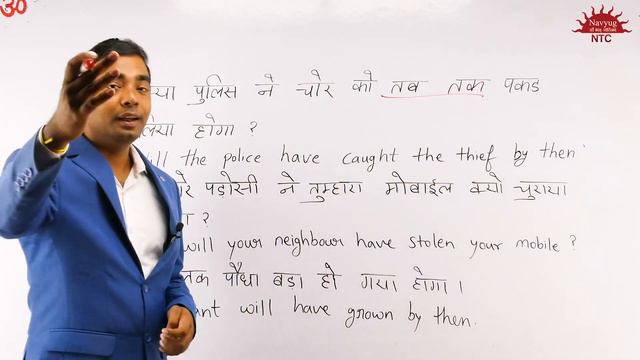 ॐ
Navyug
NTC
या पुलिस ने चोर को तब तक पकड
लिया होगा ?
ill the police have caught the thief by then
रे पड़ोसी ने तुम्हारा मोबाईल क्यों चुराया
ा ?
will your neighbour have stolen your mobile ?
तक पौधा बड़ा हो गया होगा ।
ant will have grown by then.